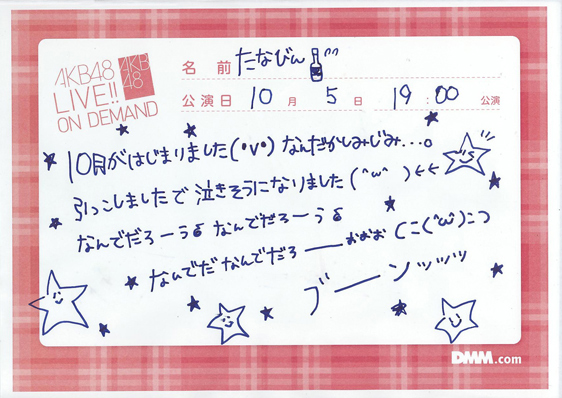 AKB48
LIVE!!
ON DEMAND
AKB
48
名前 たなびん
公演日 10月 5日 19:00 公演
10月がはじまりました(°v°) なんだかしみじみ...。
引っこしましたで 泣きそうになりました (^ω^ )←←
なんでだろーうδ なんでだろーうδ
なんでだなんでだろ――ぉぉぉ (こ(^ω^)こつ
ブ――ンッッッ
DMM.com